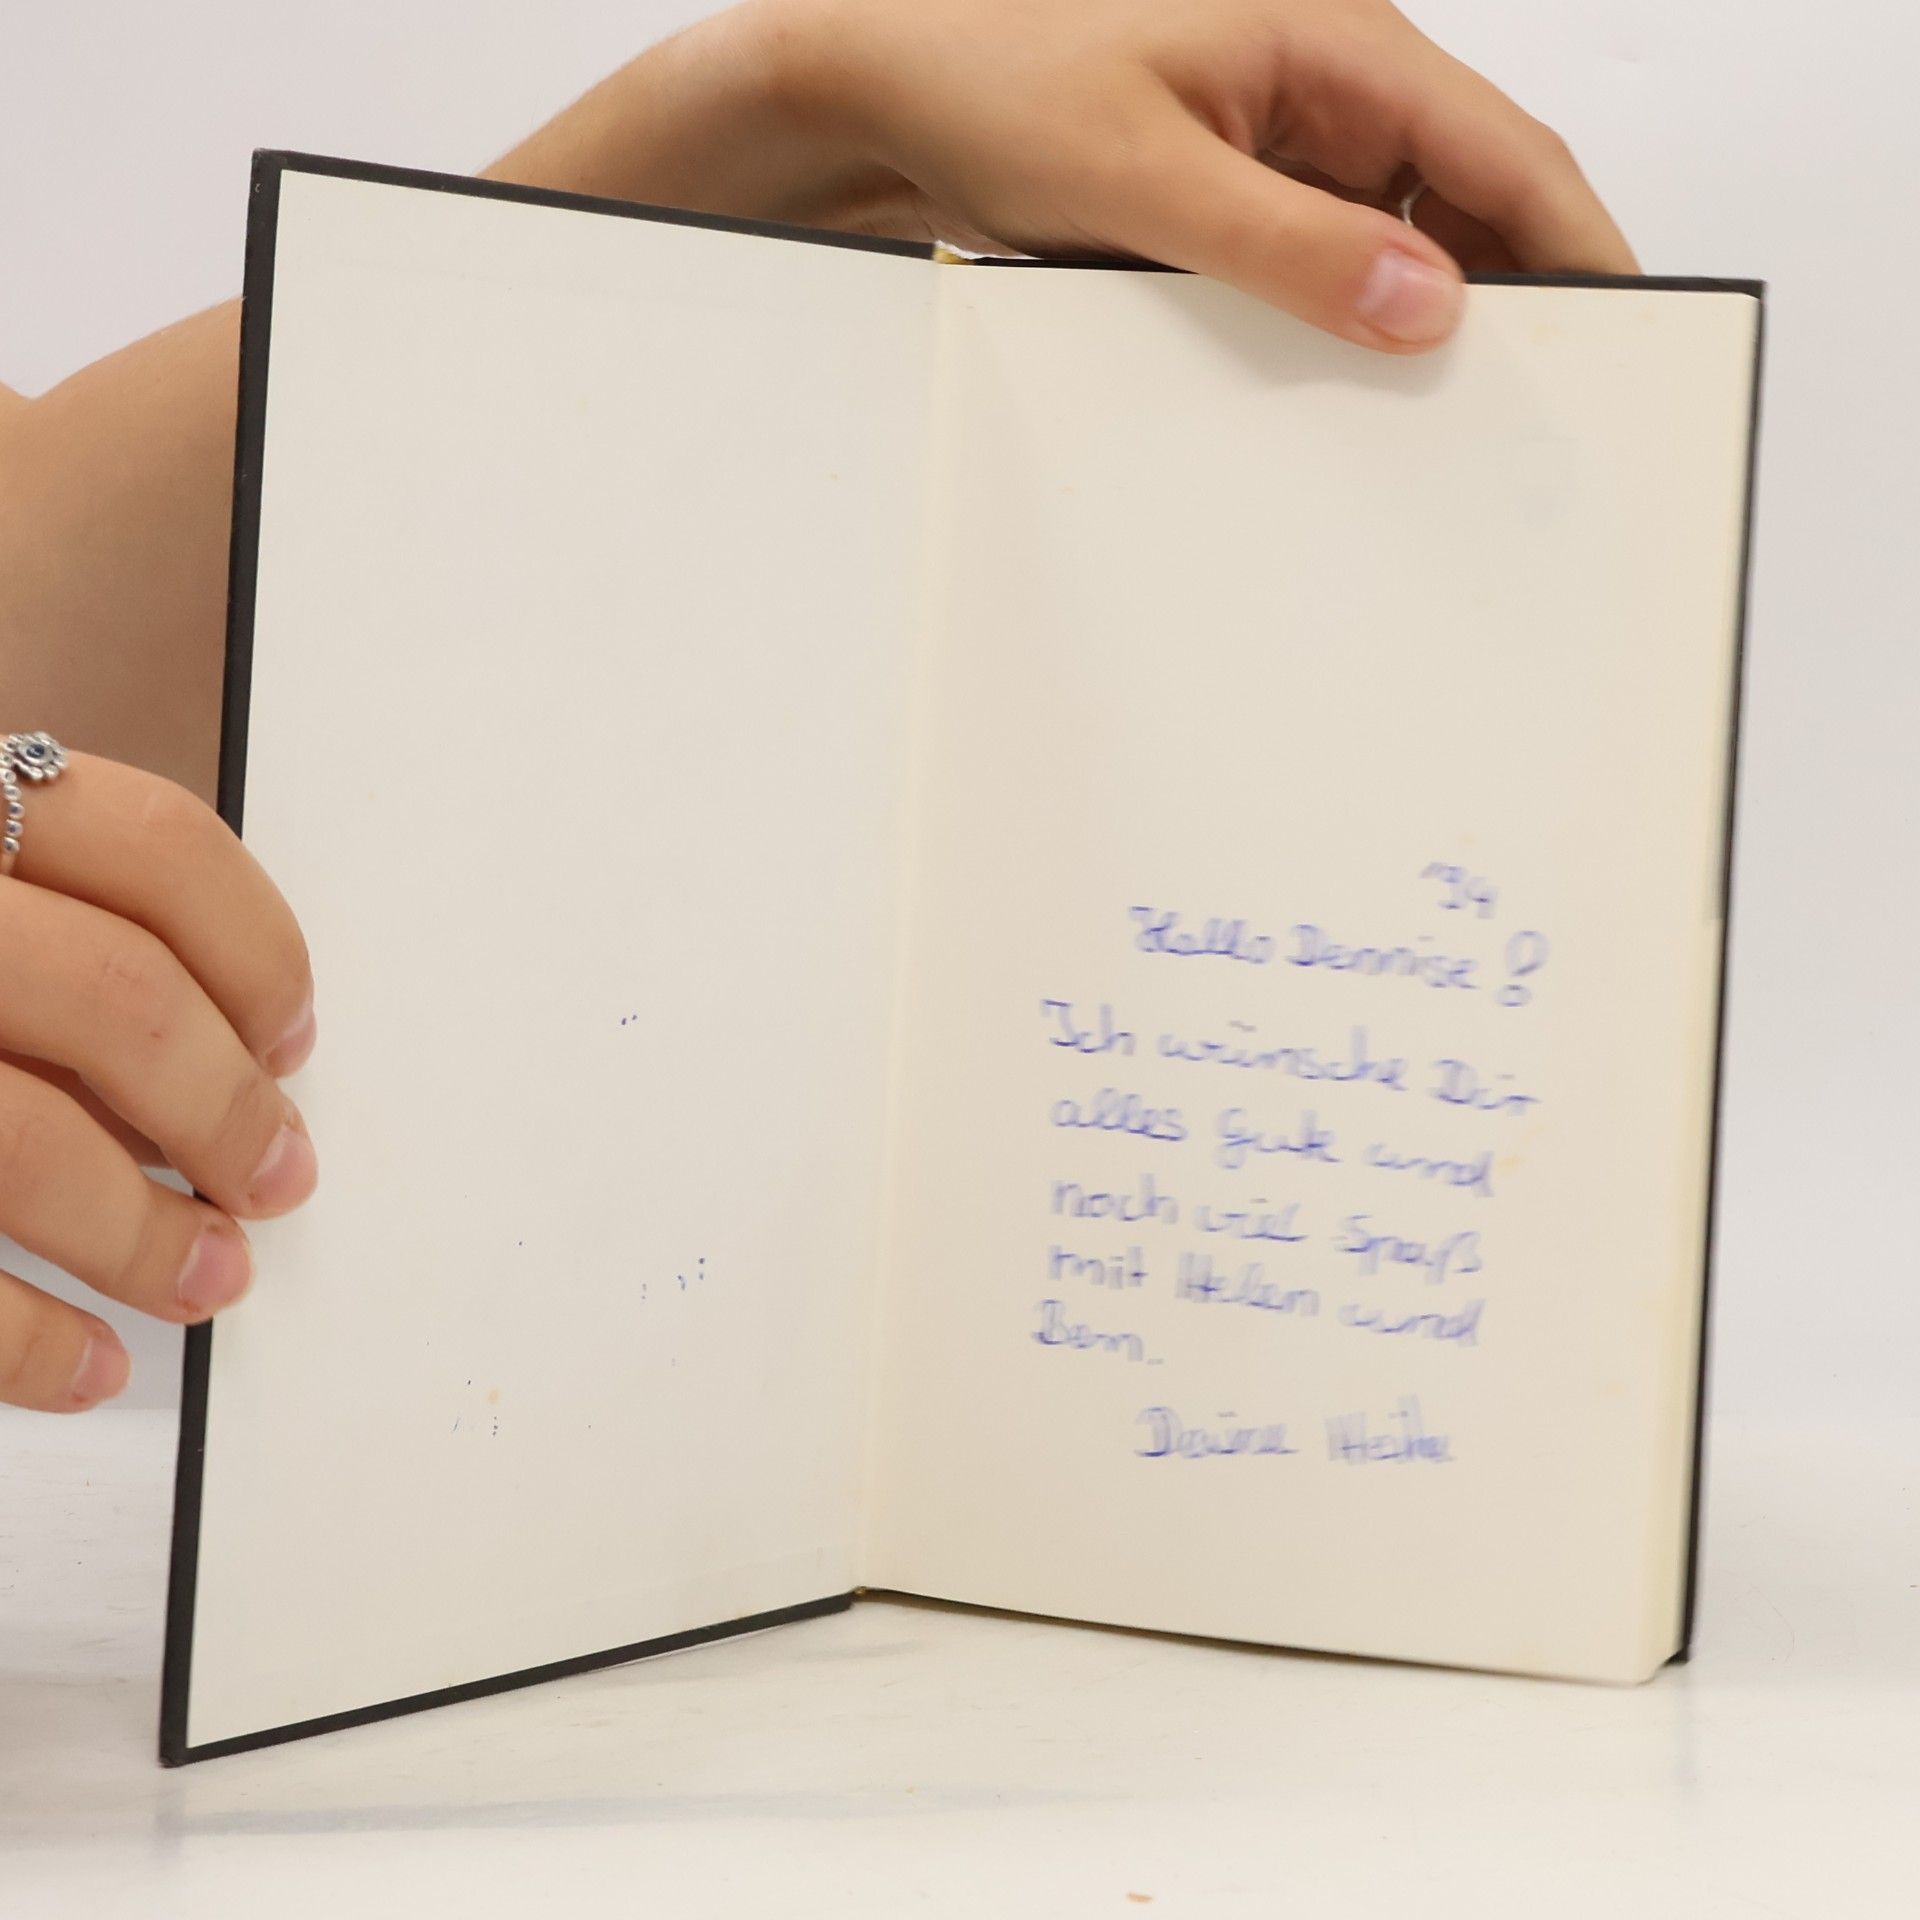 Hallo Dennise!
Ich wünsche Dir
alles Gute und
noch viel Spaß
mit Helen und
Ben.
Deine